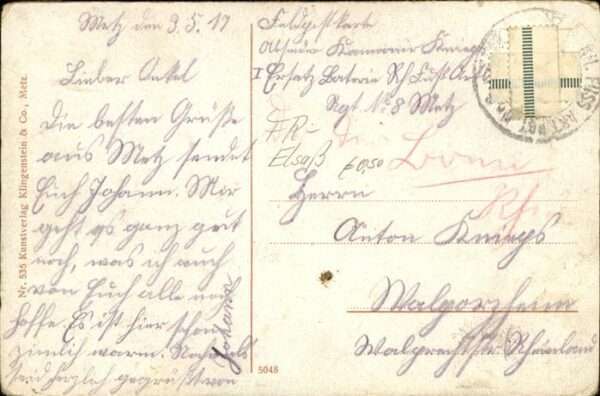 Metz den 3.5.17
Lieber Onkel
Die besten Grüße
aus Metz sendet
Euch Johann. Mir
geht es ganz gut
noch, was ich auch
von Euch alle noch
hoffe. Es ist hier schon
ziemlich warm. Nochmals
seid herzlich gegrüßt von
Johann
Feldpostkarte
Absender Kanonier Knieps
I Ersatz Batterie
Regt No 8 Metz
FR-
Elsaß
€0,50
Bonn
Rh
Herrn
Anton Knieps
Walporzheim
Rheinland
Nr. 535 Kunstverlag Klingenstein & Co., Metz.
5048